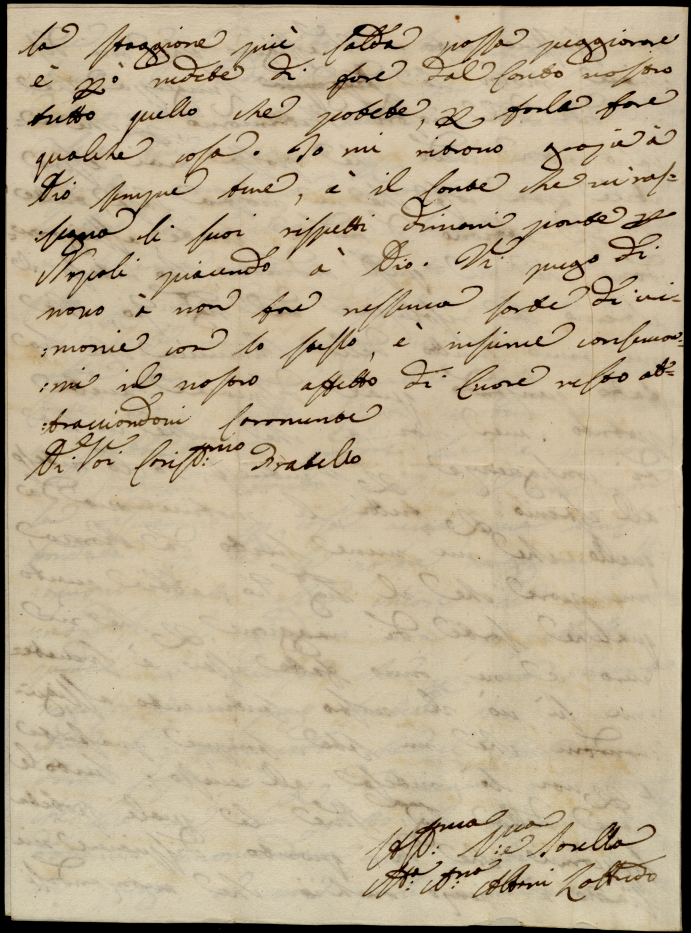 la staggione più calda possa peggiorare
è p.º vedete di fare dal Canto nostro
tutto quello che potete, p farla fare
qualche cosa. Io mi ritrovo grazia à
Dio sempre bene, è il Conte che vi ras=
:segna li suoi rispetti dimani parte p
Napoli piacendo à Dio. Vi prego di
novo à non fare nessuna sorte di ci=
:monie con lo stesso, è insieme conservar=
:mi il nostro affetto di Cuore resto ab=
:bracciandoni Caramente
Di Voi Caris.mo Fratello
Aff.ma V.ra Sorella
Albani